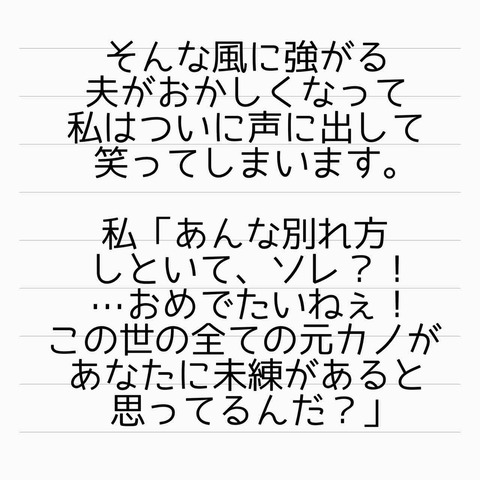 そんな風に強がる
夫がおかしくなって
私はついに声に出して
笑ってしまいます。
私「あんな別れ方
しといて、ソレ？！
…おめでたいねぇ！
この世の全ての元カノが
あなたに未練があると
思ってるんだ？」